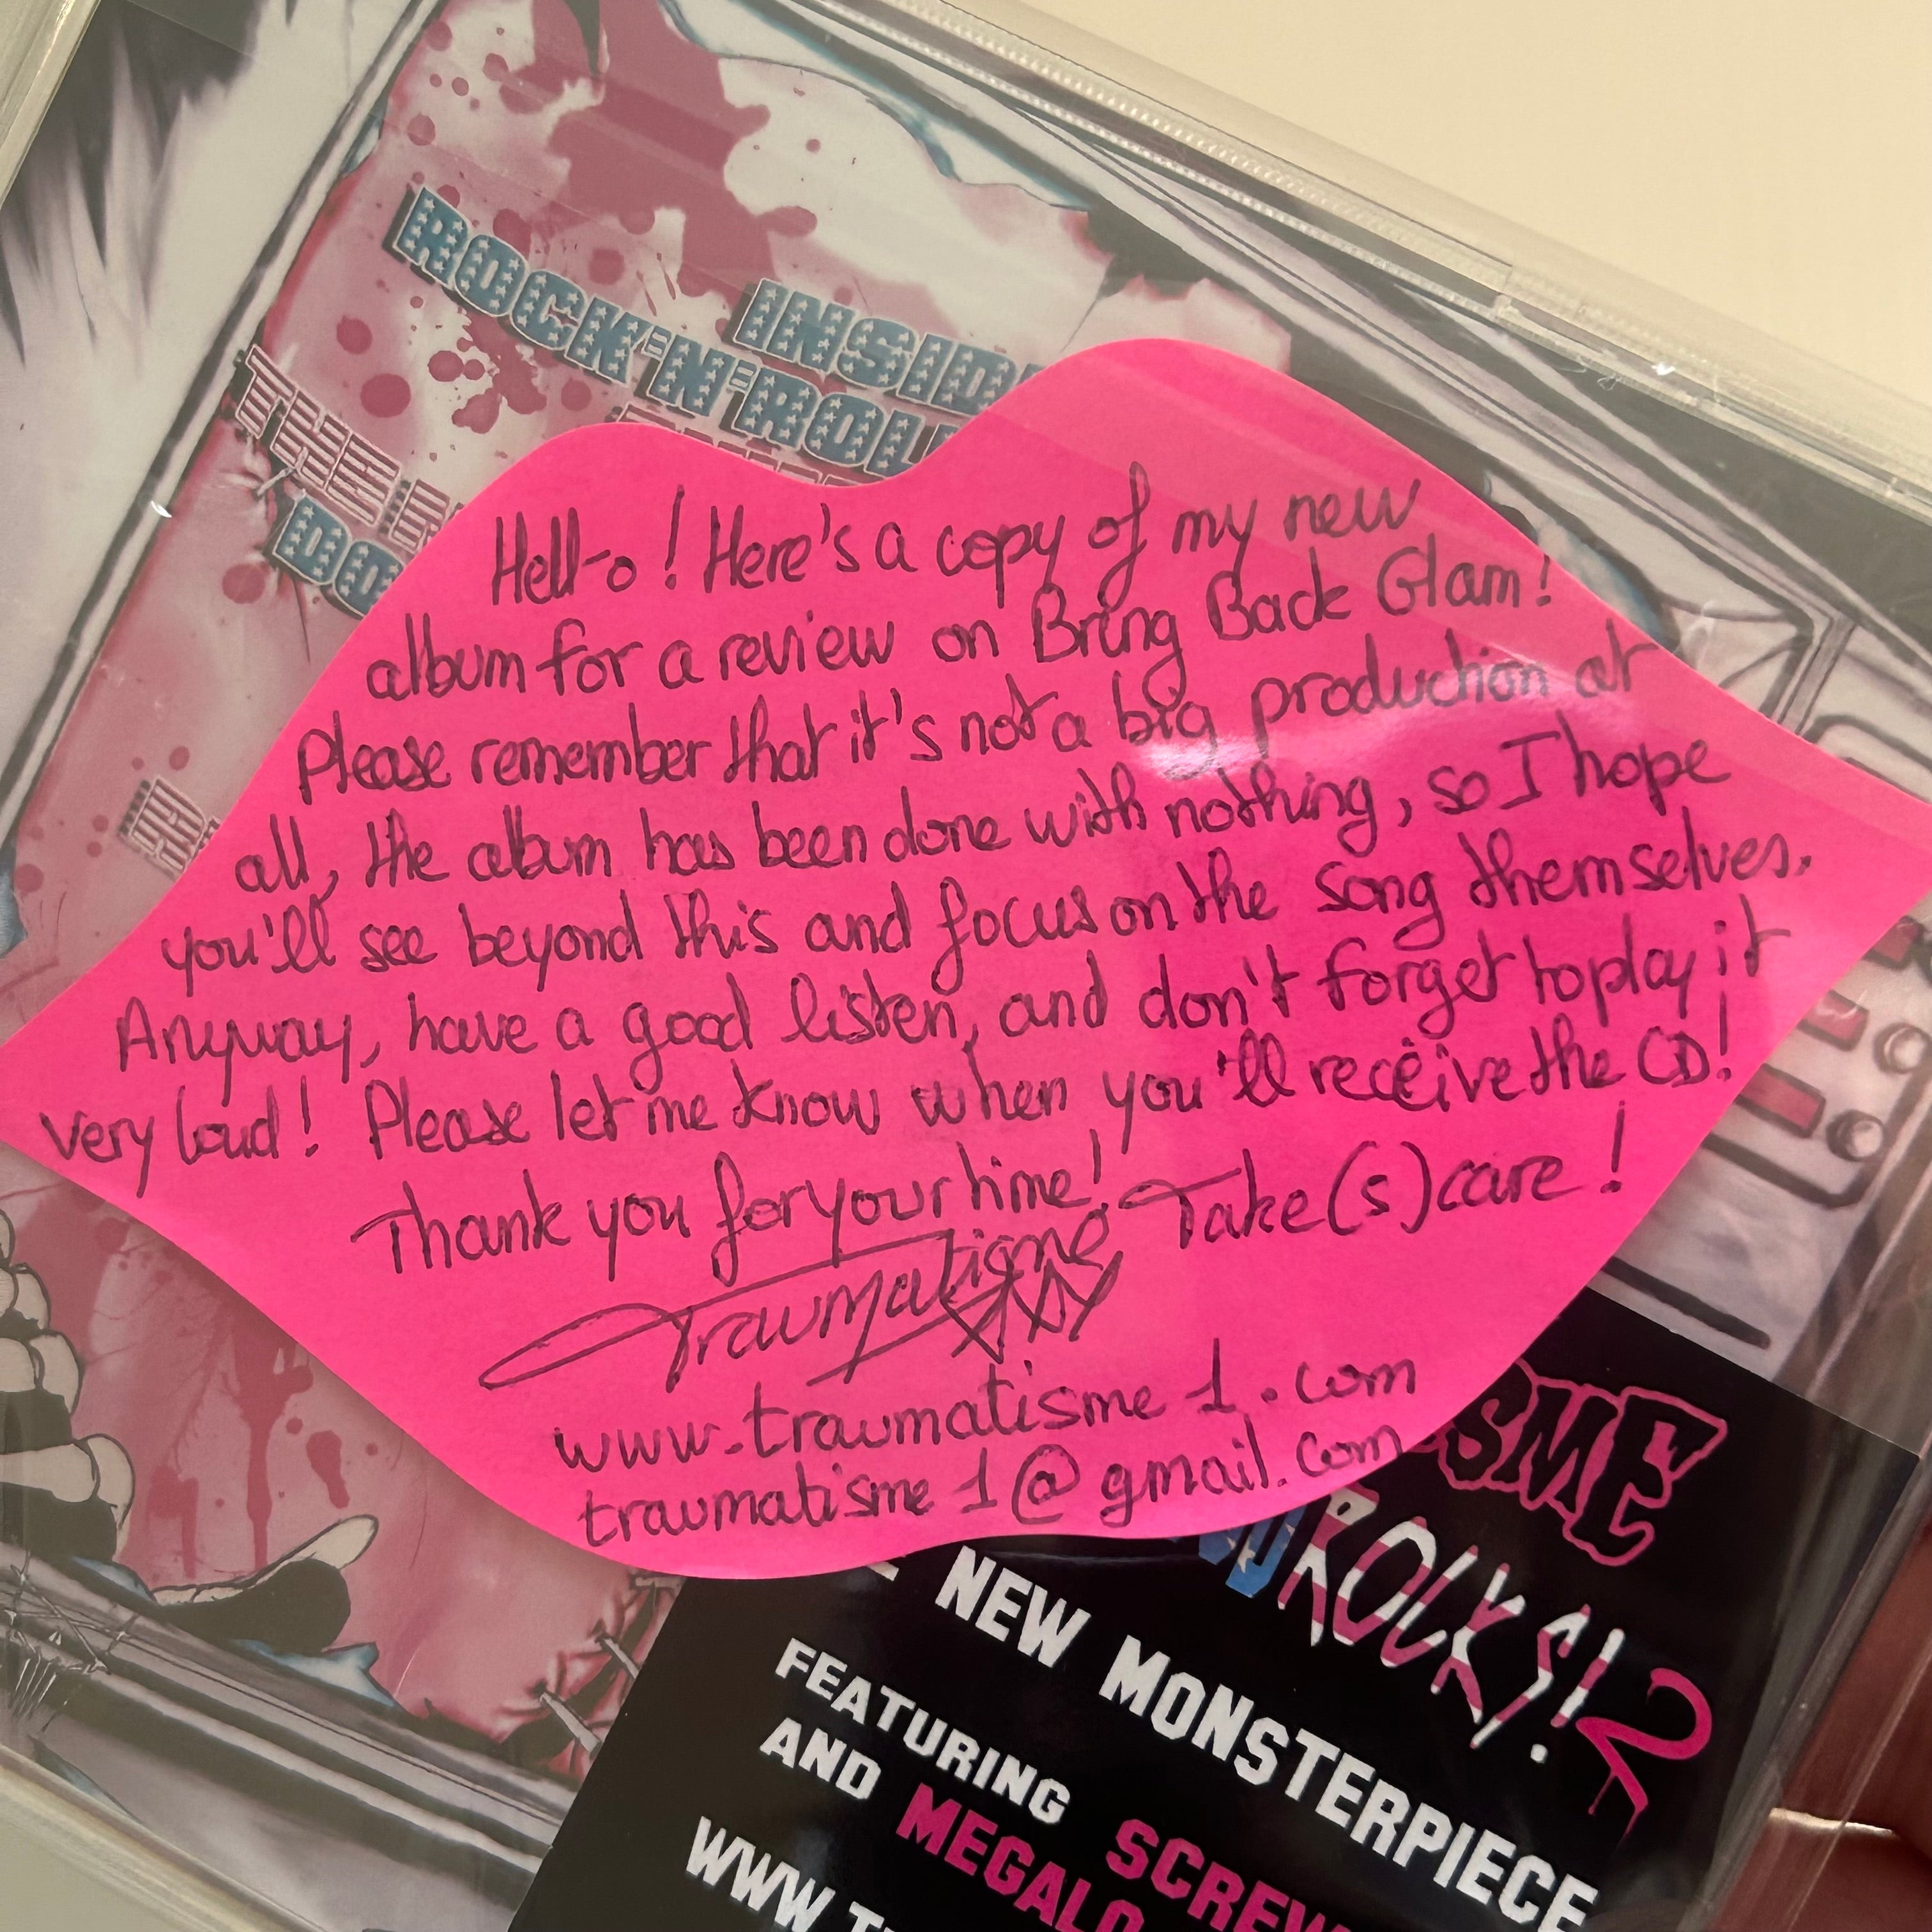 INSID
ROCK'N'ROL
THE
DO
Hell-o! Here's a copy of my new
album for a review on Bring Back Glam!
Please remember that it's not a big production at
all, the album has been done with nothing, so I hope
you'll see beyond this and focus on the song themselves.
Anyway, have a good listen, and don't forget to play it
very loud! Please let me know when you'll receive the CD!
Thank you for your time! Take(s) care!
Traumatisme
www.traumatisme1.com
traumatisme1@gmail.com
SME
ROCKS! 2
NEW MONSTERPIECE
FEATURING SCREW
AND MEGALO
WWW.T